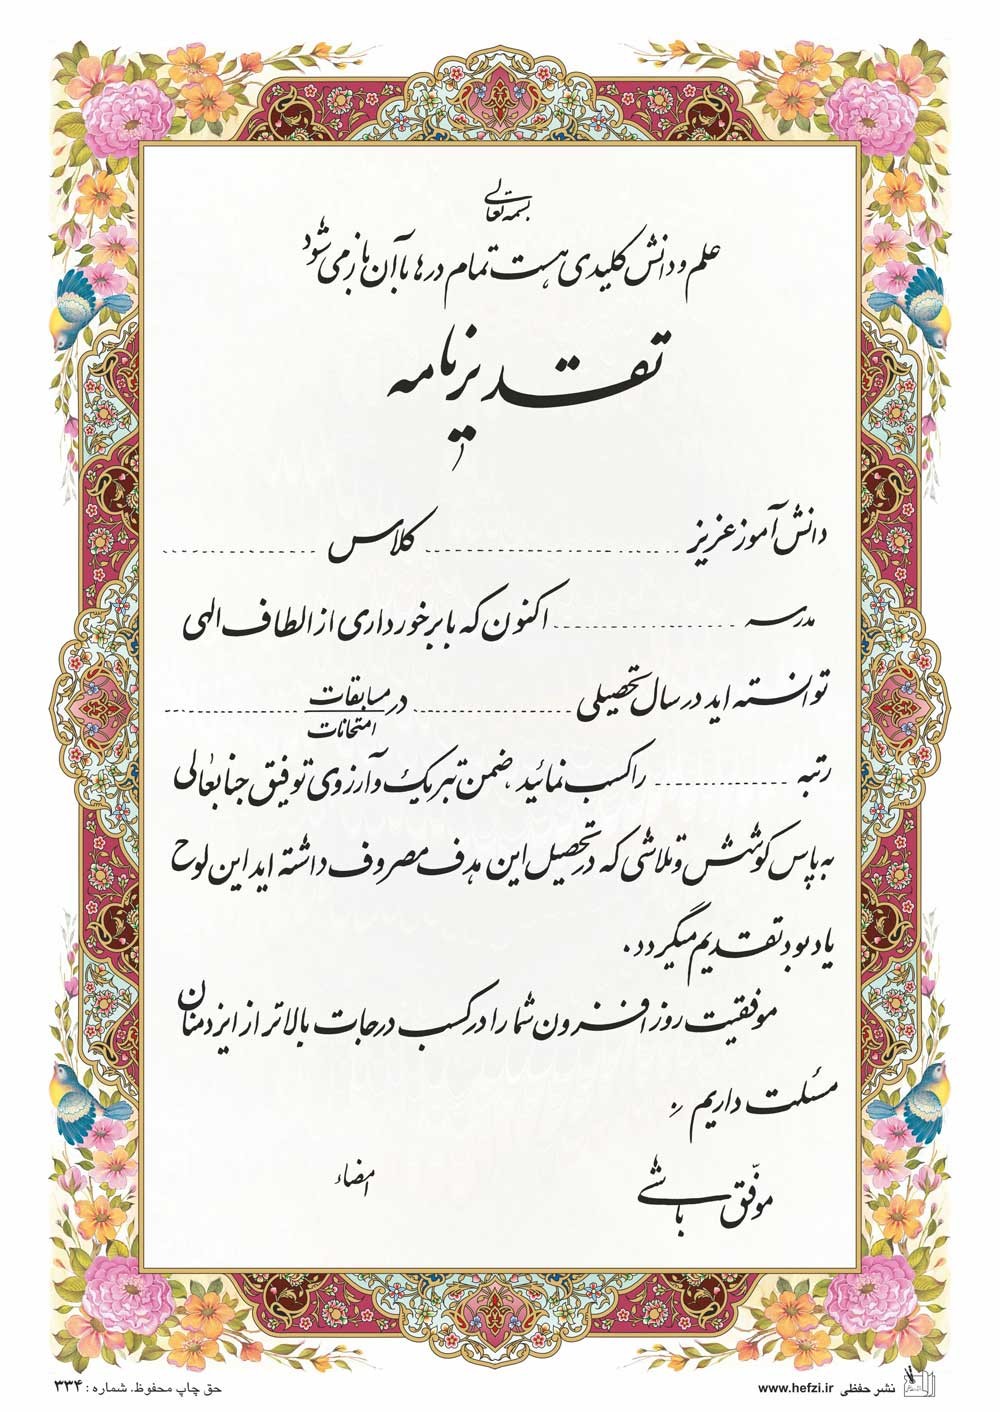 بسمه تعالی
علم و دانش کلیدی هست تمام درها با آن باز می شود
تقدیرنامه
دانش آموز عزیز .................... کلاس ..............
مدرسه .................... اکنون که با برخورداری از الطاف الهی
توانسته اید در سال تحصیلی .................... در مسابقات ....................
امتحانات
رتبه .................... را کسب نمائید، ضمن تبریک و آرزوی توفیق جنابعالی
به پاس کوشش و تلاشی که در تحصیل این هدف مصروف داشته اید این لوح
یادبود تقدیم میگردد.
موفقیت روز افزون شما را در کسب درجات بالاتر از ایزد منان
مسئلت داریم.
موفّق باشی
امضاء
نشر حفظی www.hefzi.ir
حق چاپ محفوظ. شماره : ۳۳۴